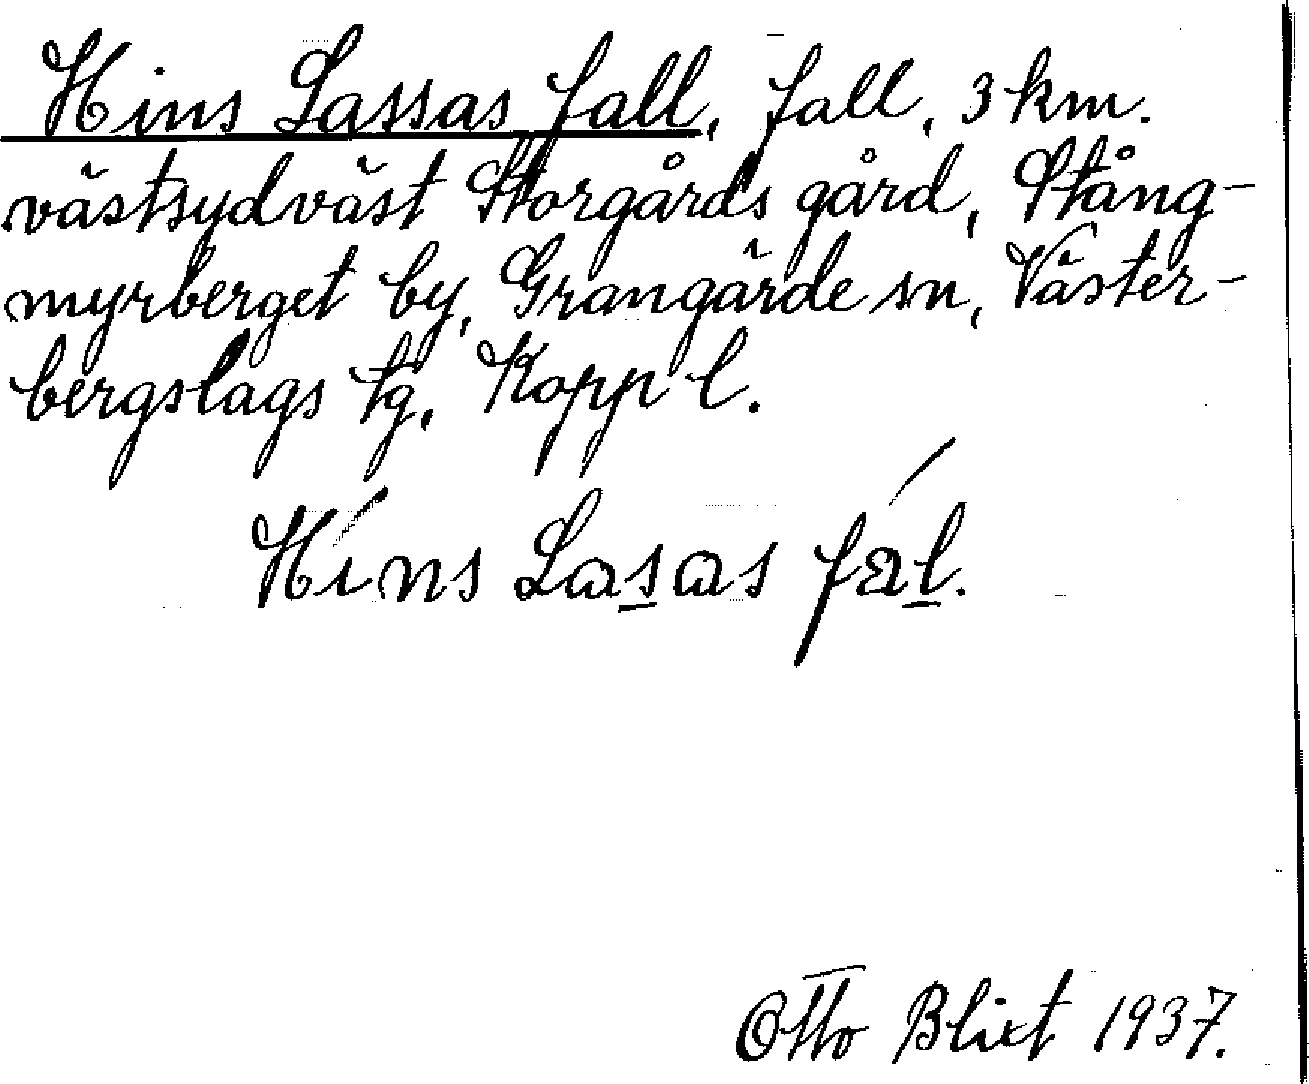 Hins Lassas fall, fall, 3 km.
västsydväst Storgårds gård, Stång-
myrberget by, Grangärde sn, Väster-
bergslags fg, Kopp l.
Híns Lasas fál.
Otto Blixt 1937.